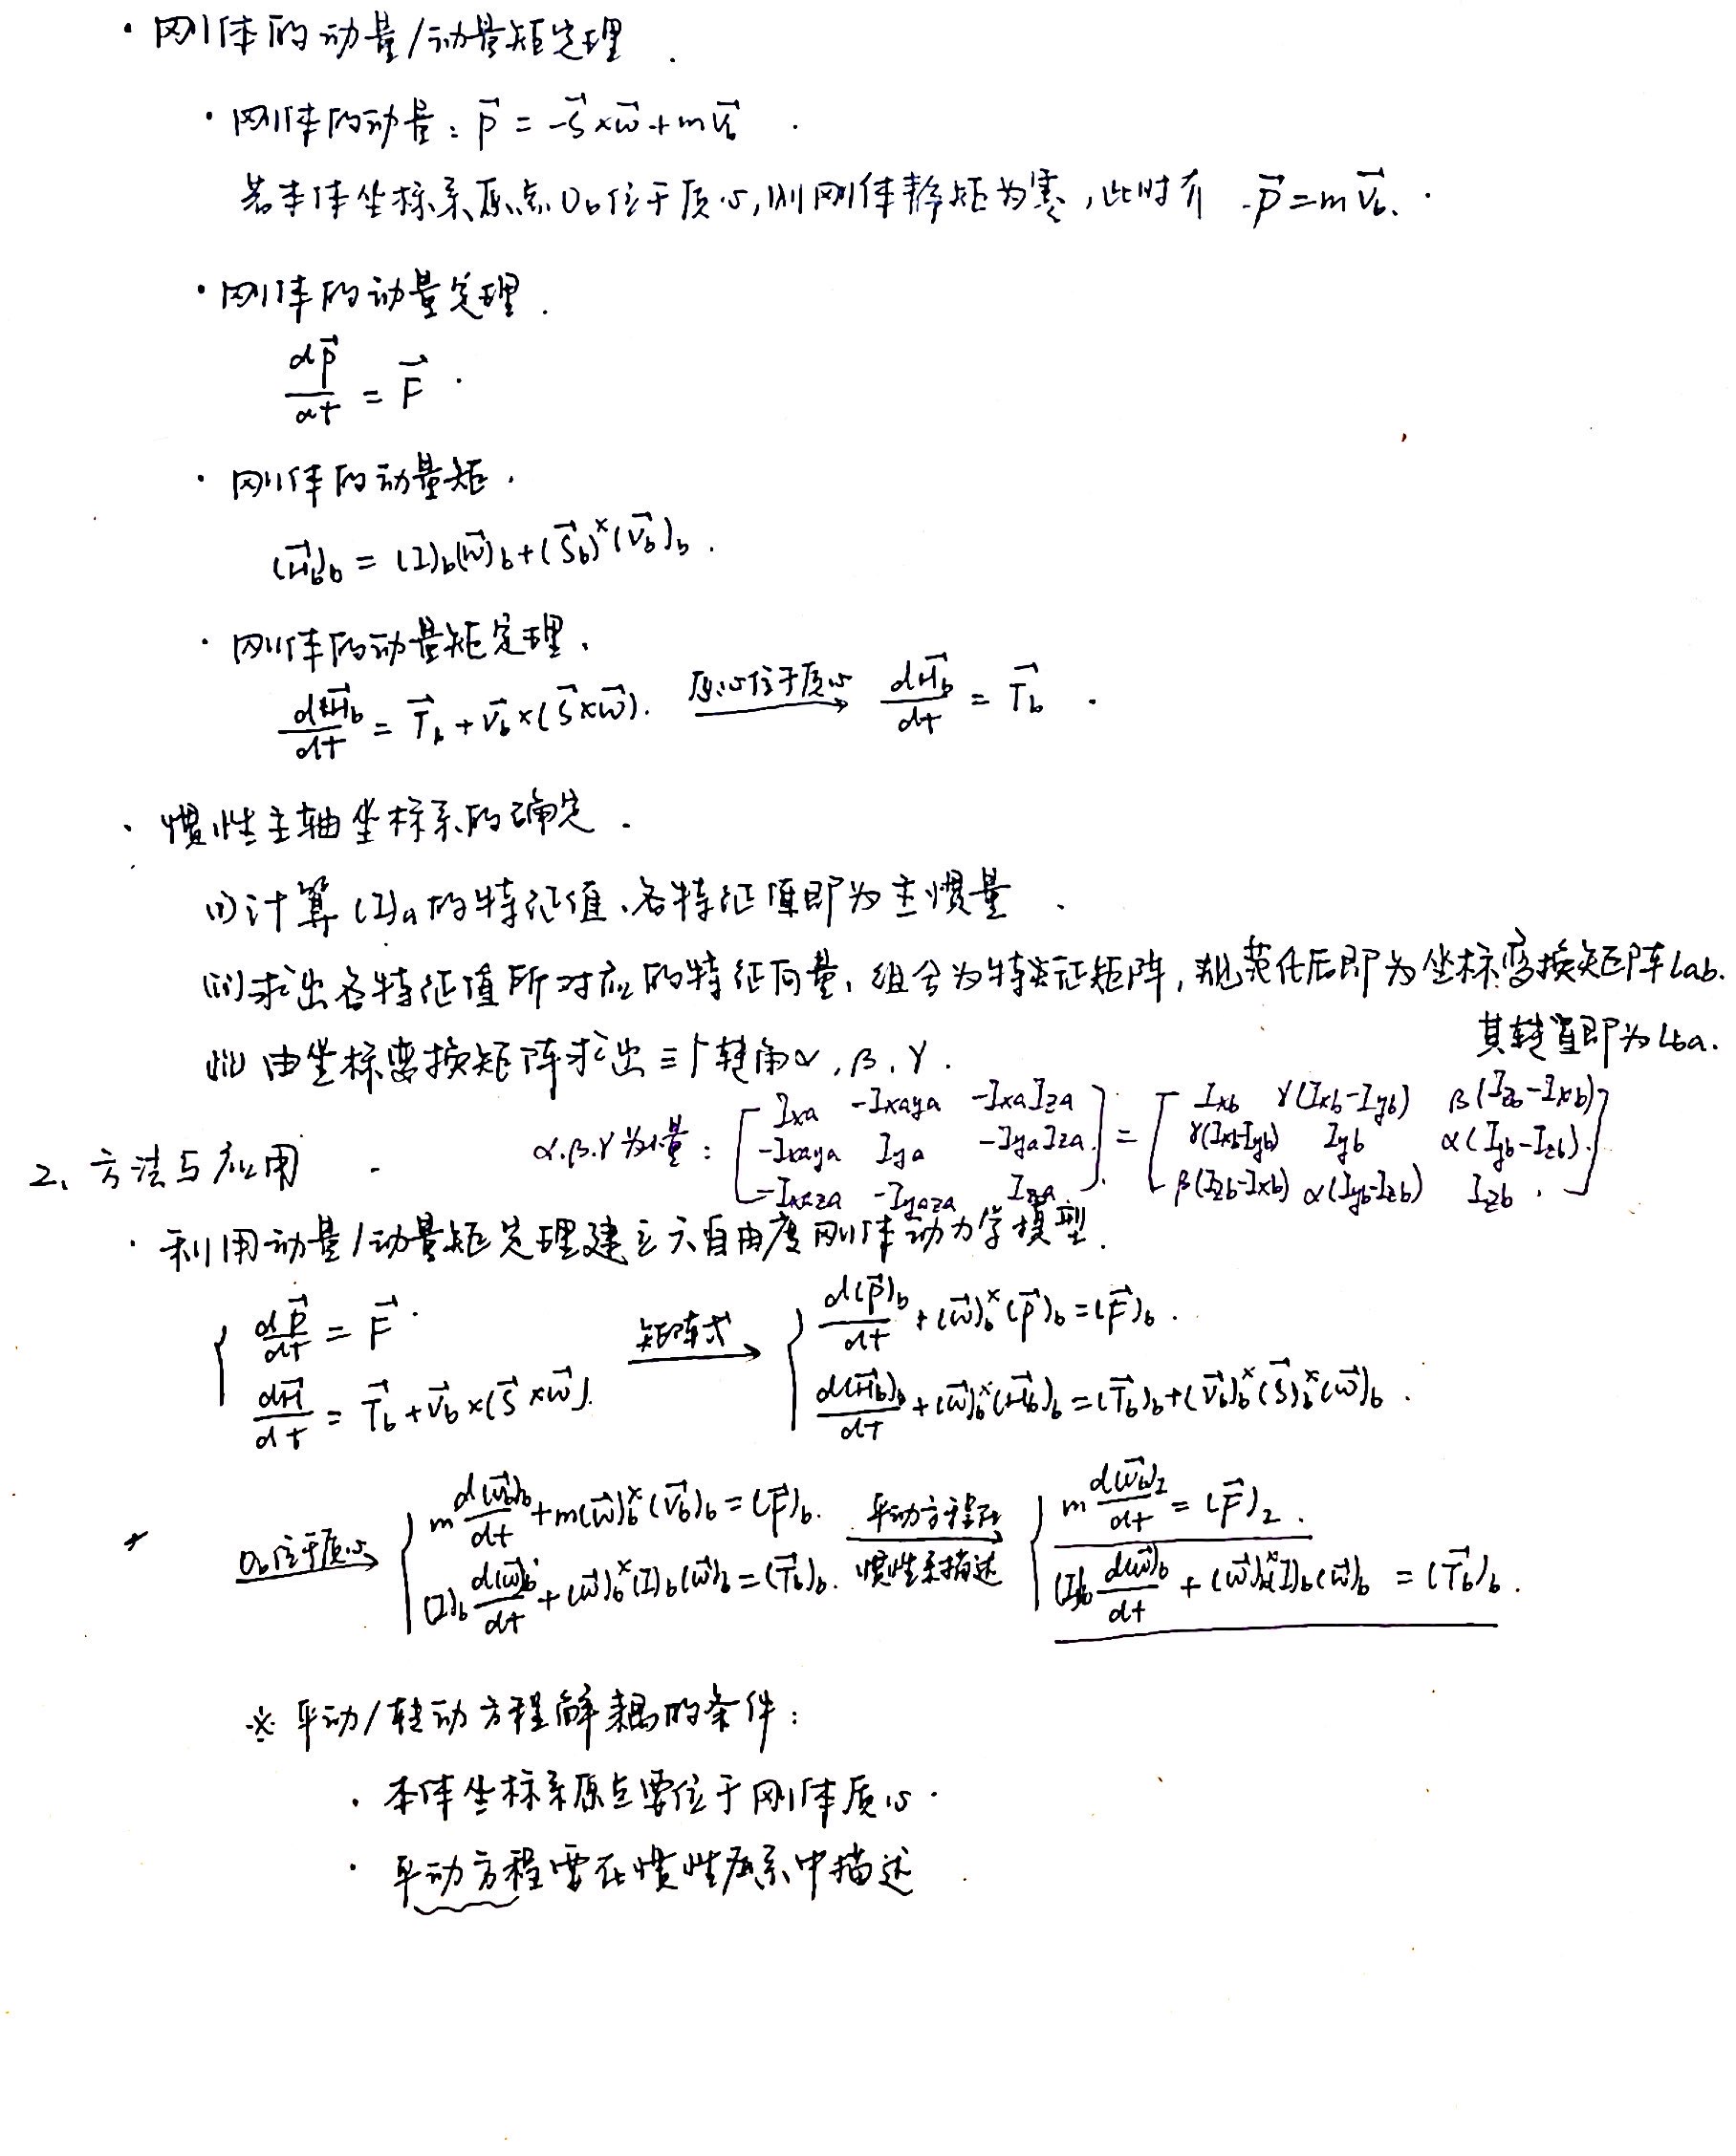 · 刚体的动量/动量矩定理.
· 刚体的动量: p⃗ = -S⃗×ω⃗+mv⃗b .
若本体坐标系原点Ob位于质心,则刚体静矩为零,此时有 p⃗=mv⃗b.
· 刚体的动量定理.
dp⃗/dt = F⃗ .
· 刚体的动量矩.
(H⃗b)b = (I)b(ω⃗)b+(S⃗b)^×(v⃗b)b .
· 刚体的动量矩定理.
dH⃗b/dt = T⃗b+v⃗b×(S⃗×ω⃗). 原心位于质心→ dH⃗b/dt = T⃗b .
· 惯性主轴坐标系的确定.
(i)计算(I)a的特征值,各特征值即为主惯量.
(ii)求出各特征值所对应的特征向量,组合为特征矩阵,规范化后即为坐标变换矩阵Lab.
其转置即为Lba.
(iii) 由坐标变换矩阵求出三个转角α,β,γ.
α.β.γ为小量: [Ixa -Ixaya -IxaIza; -Ixaya Iya -IyaIza; -Ixaza -Iyaza Iza] = [Ixb γ(Ixb-Iyb) β(Izb-Ixb); γ(Ixb-Iyb) Iyb α(Iyb-Izb); β(Izb-Ixb) α(Iyb-Izb) Izb]
2、方法与应用
· 利用动量/动量矩定理建立六自由度刚体动力学模型.
{ dp⃗/dt = F⃗ 矩阵式→ { d(p⃗)b/dt + (ω⃗)b^×(p⃗)b=(F⃗)b .
dH⃗/dt = T⃗b+v⃗b×(S⃗×ω⃗). d(H⃗b)b/dt+(ω⃗)b^×(H⃗b)b=(T⃗b)b+(v⃗b)b^×(S⃗)b^×(ω⃗)b .
Ob位于质心→ { m d(v⃗b)b/dt+m(ω⃗)b^×(v⃗b)b=(F⃗)b. 平动方程在惯性系描述→ { m d(v⃗b)I/dt=(F⃗)I .
(I)b d(ω⃗)b/dt+(ω⃗)b^×(I)b(ω⃗)b=(T⃗b)b. (I)b d(ω⃗)b/dt+(ω⃗)b^×(I)b(ω⃗)b = (T⃗b)b .
※ 平动/转动方程解耦的条件:
· 本体坐标系原点要位于刚体质心.
· 平动方程要在惯性系中描述